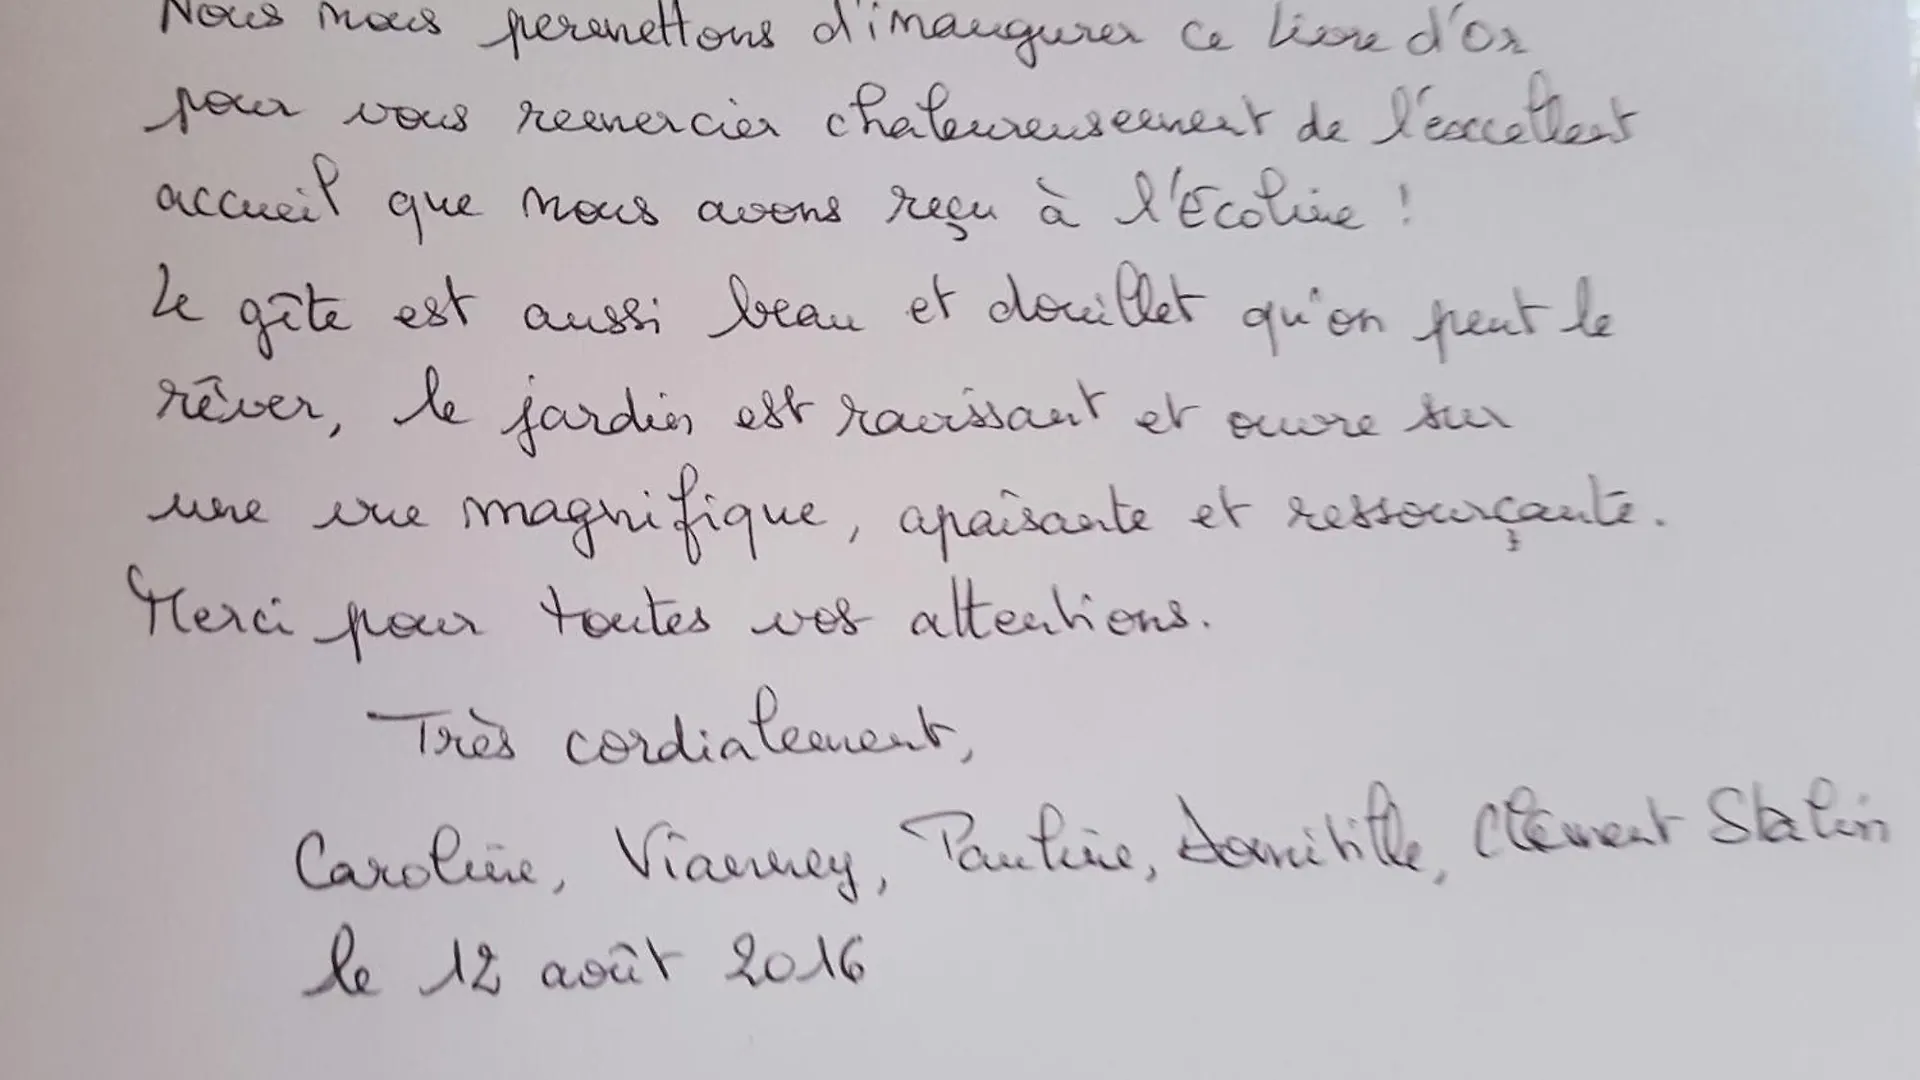 Nous nous permettons d'inaugurer ce livre d'Or
pour vous remercier chaleureusement de l'excellent
accueil que nous avons reçu à l'Ecoline !
Le gîte est aussi beau et douillet qu'on peut le
rêver, le jardin est ravissant et ouvre sur
une vue magnifique, apaisante et ressourçante.
Merci pour toutes vos attentions.
Très cordialement,
Caroline, Vianney, Pauline, Domitille, Clément Stalin
le 12 août 2016